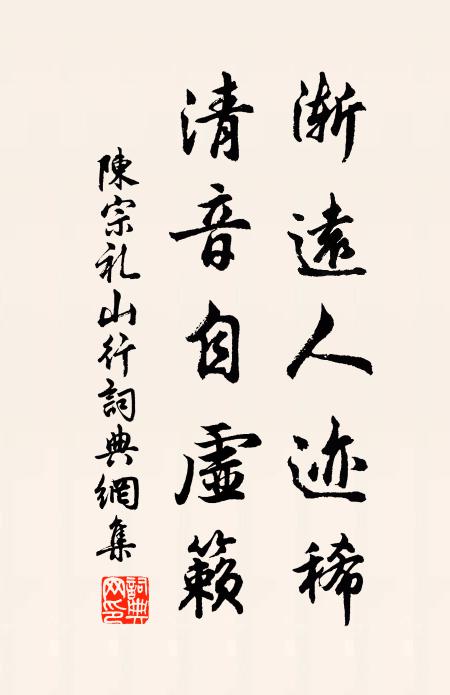 渐遠人迹稀
清音自虛籟
陳宗礼山行詞典網集
詞典網印